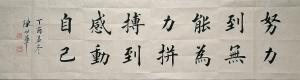 努力
到無
能為
力拼
搏到
感動
自己
丁酉